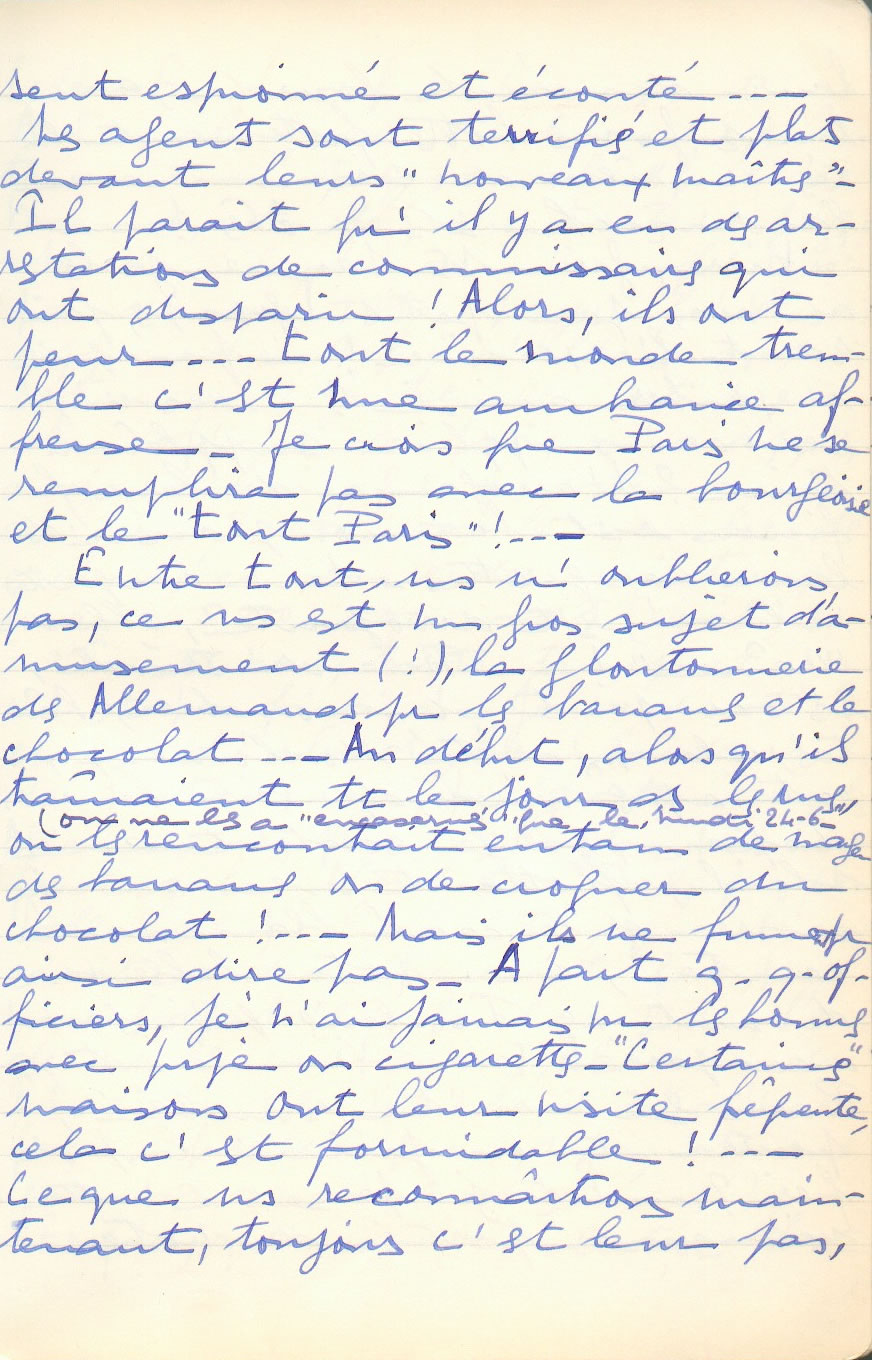 sent espionné et écouté ---
Les agents sont terrifiés et plats
devant leurs "nouveaux maîtres"-
Il parait qu'il y a eu des ar-
restations de commissaires qui
ont disparu ! Alors, ils ont
peur --- tout le monde trem-
ble c'est une ambiance af-
freuse - Je crois que Paris ne se
remplira pas avec la bourgeoisie
et le "tout Paris" ! ---
Entre tout, ns n'oublierons
pas, ce ns est un gros sujet d'a-
musement (!), la gloutonnerie
des Allemands pr les bananes et le
chocolat --- Au début, alors qu'ils
traînaient tt le jour ds les rues,
(on ne les a "encasernés" que le lundi 24-6-)
on les rencontrait entrain de manger
des bananes ou de croquer du
chocolat ! --- Mais ils ne fument pr
ainsi dire pas - A part q-q- of-
ficiers, je n'ai jamais vu les hommes
avec pipe ou cigarettes - "Certaines"
maisons ont leur visite fréquente,
cela c'est formidable ! ---
Ce que ns reconnaîtrons main-
tenant, toujours c'est leur pas,